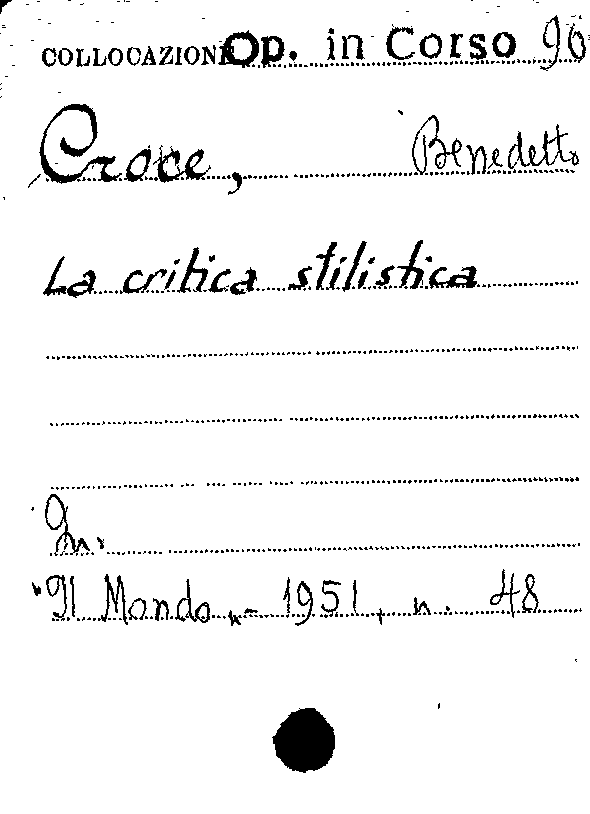 COLLOCAZIONE Op. in Corso 96
Croce, Benedetto
La critica stilistica
In.
"Il Mondo„ - 1951, n. 48